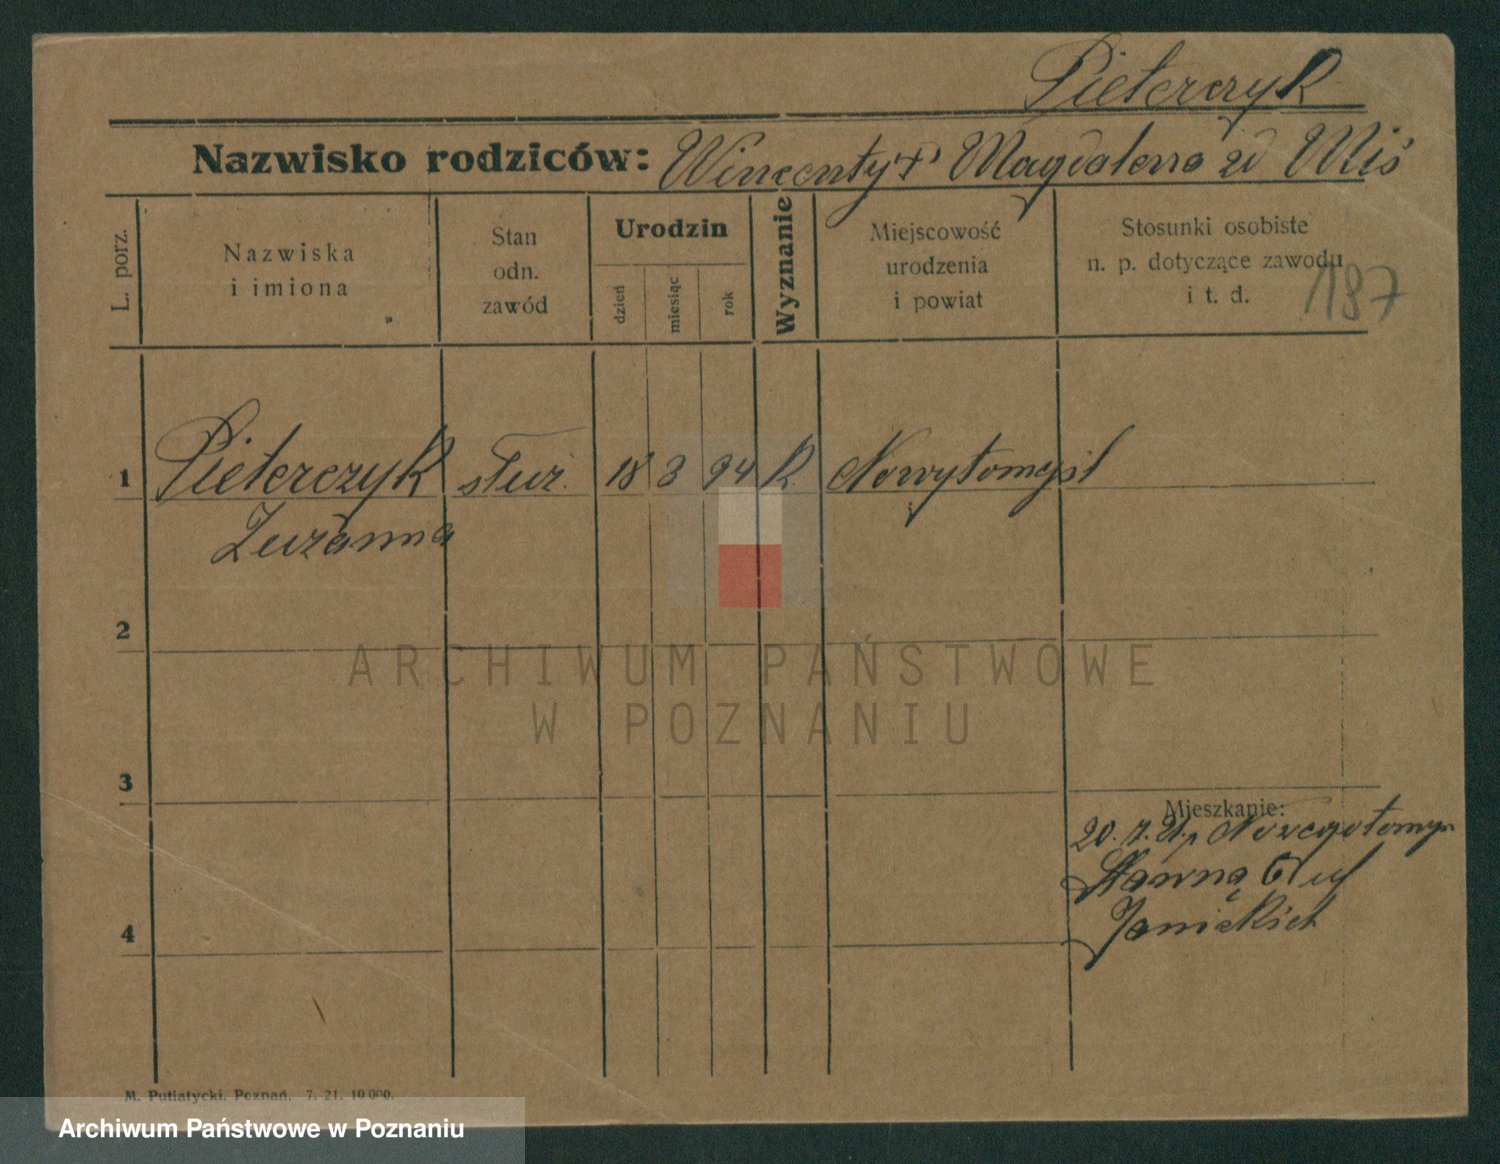 Pieterczyk
Nazwisko rodziców: Wincenty + Magdalena zd Miś
L. porz.
Nazwiska
i imiona
Stan
odn.
zawód
Urodzin
dzień
miesiąc
rok
Wyznanie
Miejscowość
urodzenia
i powiat
Stosunki osobiste
n. p. dotyczące zawodu
i t. d.
187
1 Pieterczyk służ. 18 3 94 K Nowytomyśl
Zuzanna
2
3
Mieszkanie:
20. 7. 21.
4
M. Putiatycki, Poznań. 7. 21. 10 000.
ARCHIWUM PAŃSTWOWE
W POZNANIU
Archiwum Państwowe w Poznaniu